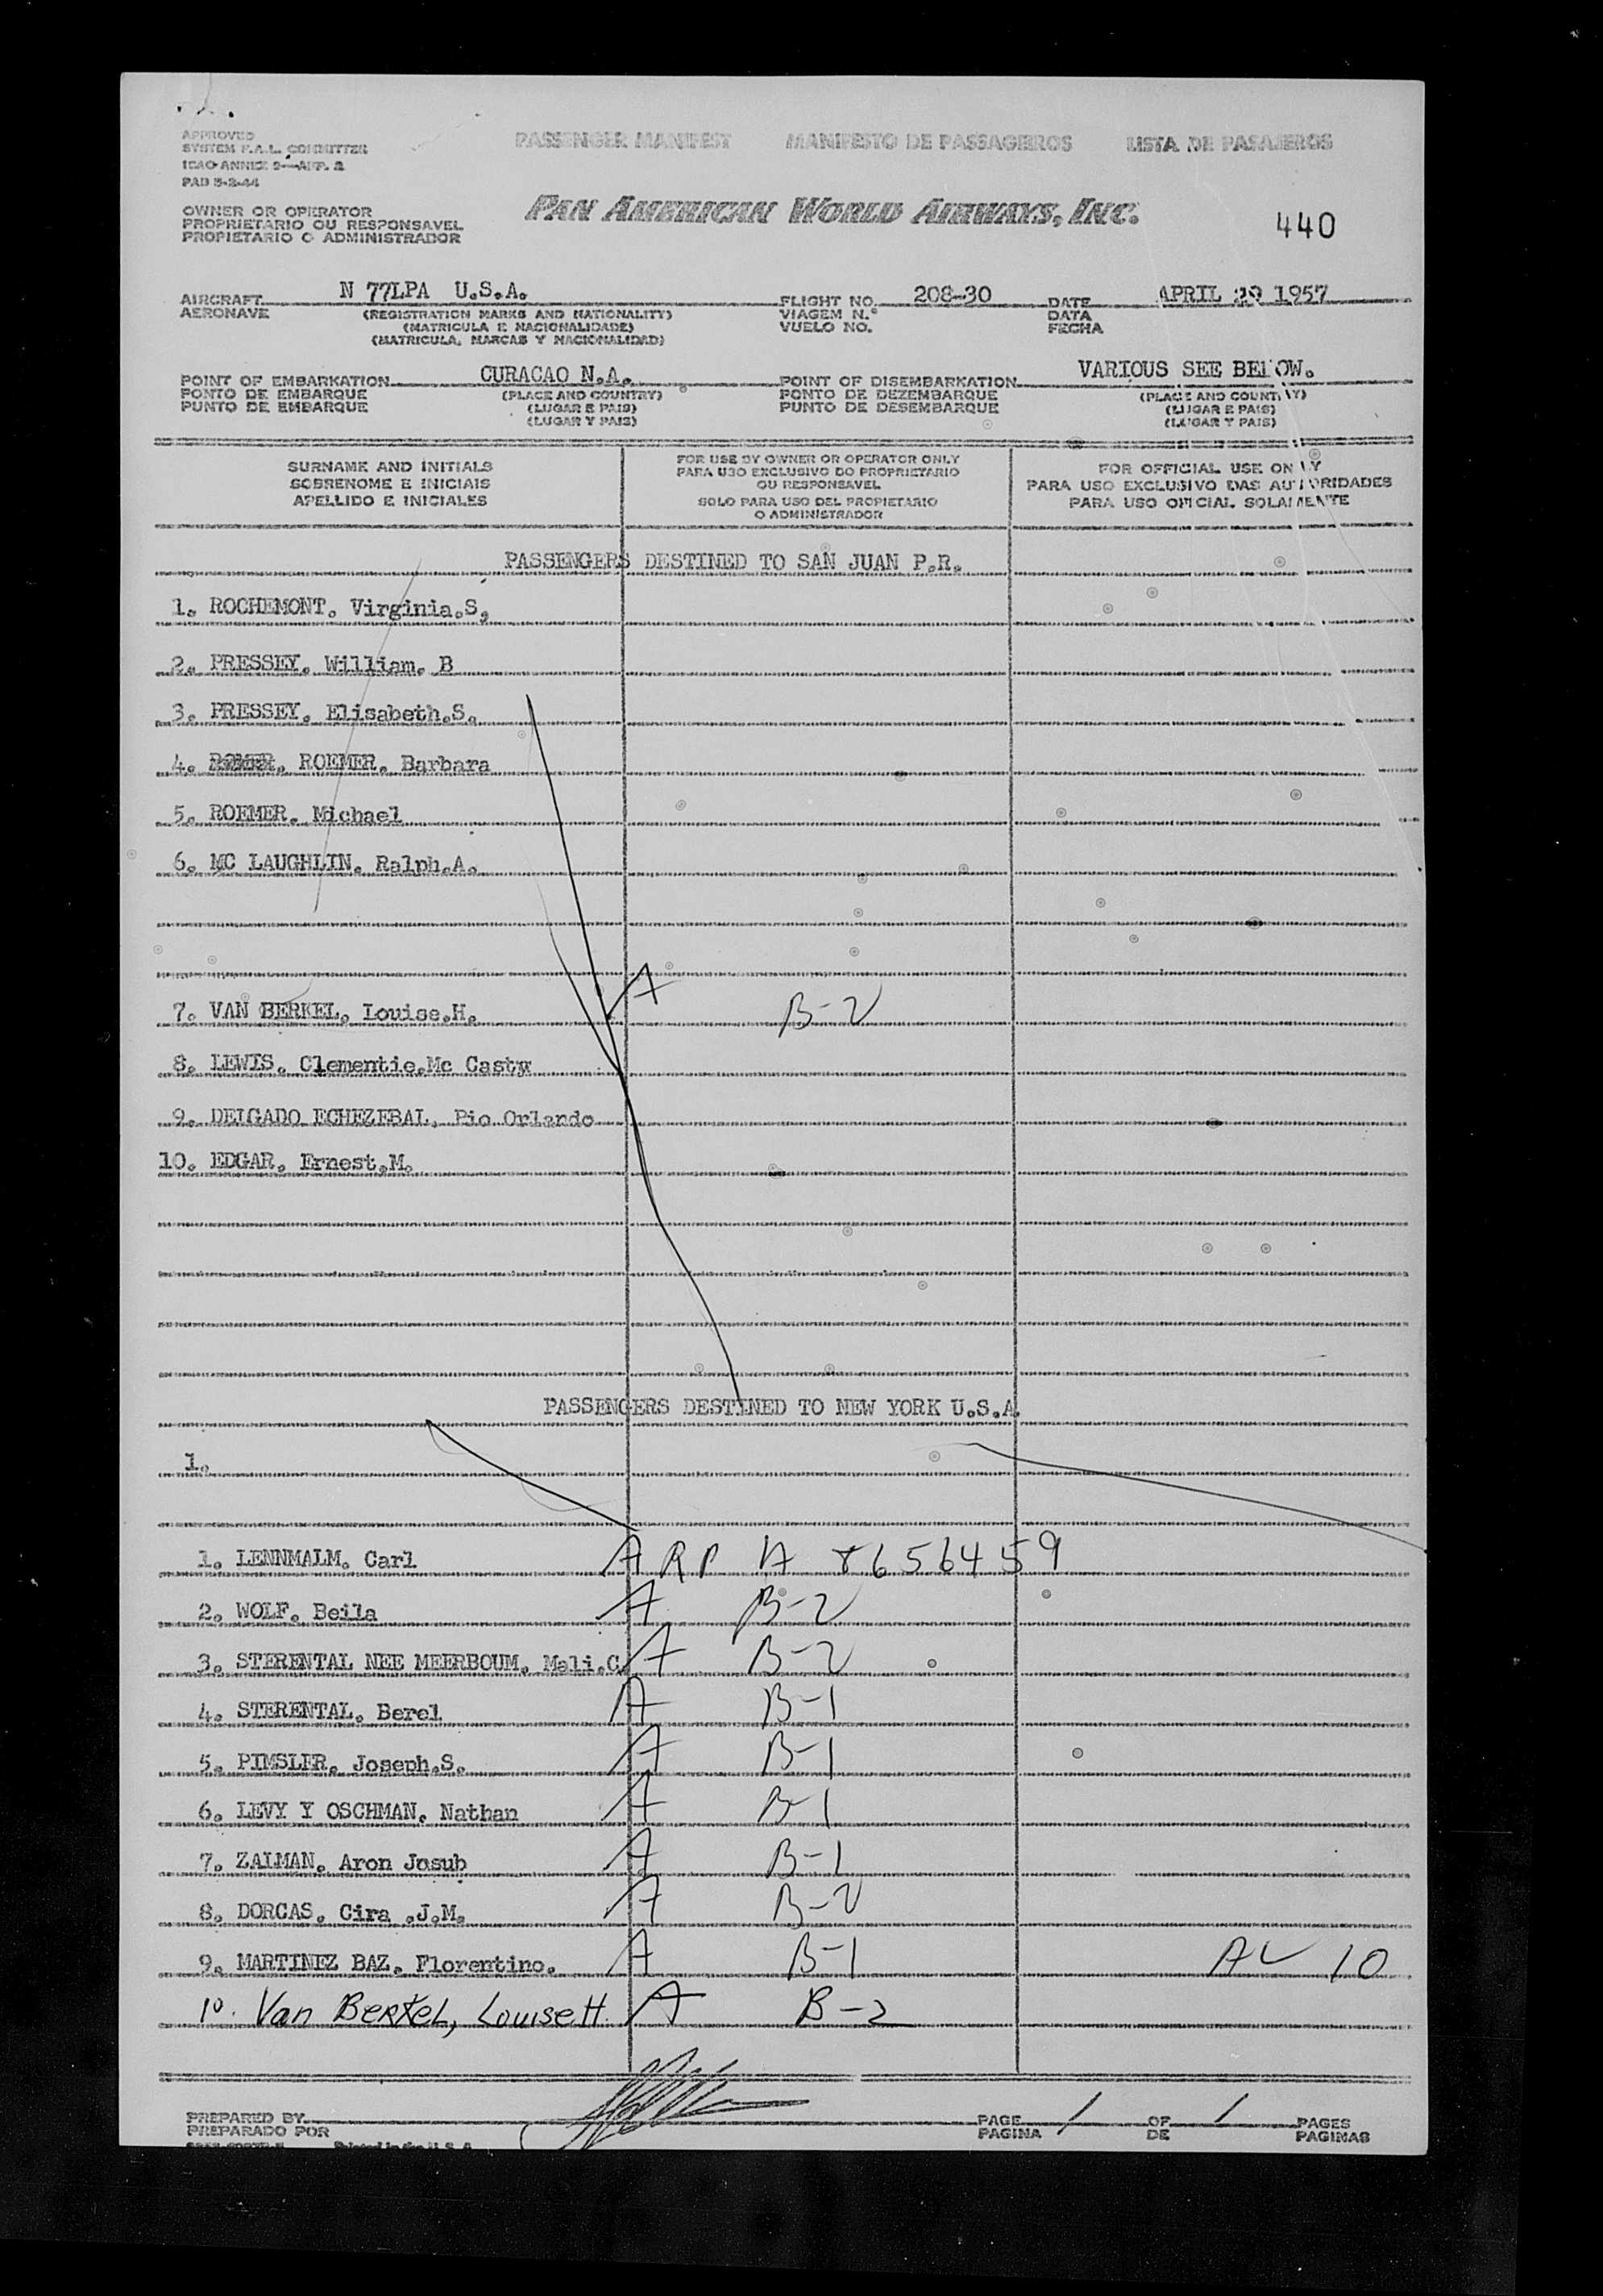 APPROVED
SYSTEM F.A.L. COMMITTEE
ICAO ANNEX 9—APP. 2
PAD 5-2-44
PASSENGER MANIFEST MANIFESTO DE PASSAGEIROS LISTA DE PASAJEROS
OWNER OR OPERATOR
PROPRIETARIO OU RESPONSAVEL
PROPIETARIO O ADMINISTRADOR
PAN AMERICAN WORLD AIRWAYS, INC.
440
AIRCRAFT N 77LPA U.S.A. FLIGHT NO. 208-30 DATE APRIL 29 1957
AERONAVE (REGISTRATION MARKS AND NATIONALITY) VIAGEM N.º DATA
(MATRICULA E NACIONALIDADE) VUELO NO. FECHA
(MATRICULA, MARCAS Y NACIONALIDAD)
POINT OF EMBARKATION CURACAO N.A. POINT OF DISEMBARKATION VARIOUS SEE BELOW.
PONTO DE EMBARQUE (PLACE AND COUNTRY) PONTO DE DEZEMBARQUE (PLACE AND COUNTRY)
PUNTO DE EMBARQUE (LUGAR E PAIS) PUNTO DE DESEMBARQUE (LUGAR E PAIS)
(LUGAR Y PAIS) (LUGAR Y PAIS)
SURNAME AND INITIALS
SOBRENOME E INICIAIS
APELLIDO E INICIALES
FOR USE BY OWNER OR OPERATOR ONLY
PARA USO EXCLUSIVO DO PROPRIETARIO
OU RESPONSAVEL
SOLO PARA USO DEL PROPIETARIO
O ADMINISTRADOR
FOR OFFICIAL USE ONLY
PARA USO EXCLUSIVO DAS AUTORIDADES
PARA USO OFICIAL SOLAMENTE
PASSENGERS DESTINED TO SAN JUAN P.R.
1. ROCHEMONT. Virginia.S.
2. PRESSEY. William. B
3. PRESSEY. Elisabeth.S.
4. ROEMER. Barbara
5. ROEMER. Michael
6. MC LAUGHLIN. Ralph.A.
7. VAN BERKEL. Louise.H. A B-2
8. LEWIS. Clementie.Mc Casty
9. DELGADO ECHEZEBAL. Pio Orlando
10. EDGAR. Ernest.M.
PASSENGERS DESTINED TO NEW YORK U.S.A.
1.
1. LENNMALM. Carl A RP A 8656459
2. WOLF. Beila A B-2
3. STERENTAL NEE MEERBOUM. Mali.C. A B-2
4. STERENTAL. Berel A B-1
5. PIMSLER. Joseph.S. A B-1
6. LEVY Y OSCHMAN. Nathan A B-1
7. ZALMAN. Aron Jusub A B-1
8. DORCAS. Cira .J.M. A B-2
9. MARTINEZ BAZ. Florentino. A B-1 AL 10
10. Van Berkel, Louise H. A B-2
PREPARED BY PAGE 1 OF 1 PAGES
PREPARADO POR PAGINA DE PAGINAS